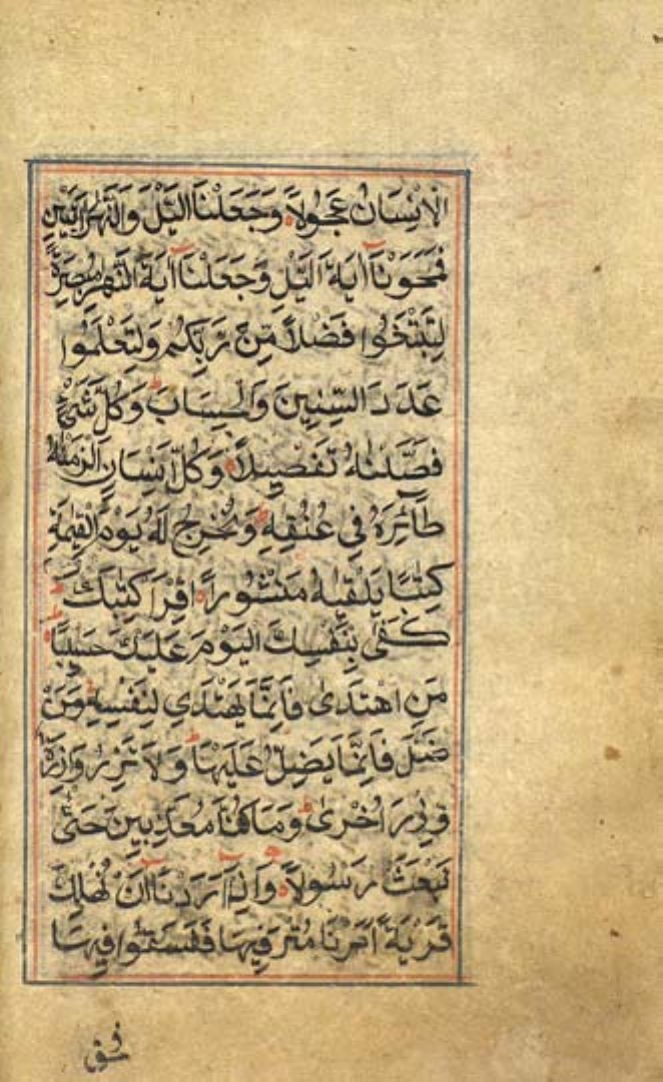 الْاِنْسَانُ عَجُولًا وَجَعَلْنَا الَّيْلَ وَالنَّهَارَ اٰيَتَيْنِ
فَمَحَوْنَآ اٰيَةَ الَّيْلِ وَجَعَلْنَآ اٰيَةَ النَّهَارِ مُبْصِرَةً
لِتَبْتَغُوا فَضْلًا مِّنْ رَبِّكُمْ وَلِتَعْلَمُوا
عَدَدَ السِّنِينَ وَالْحِسَابَ وَكُلَّ شَيْءٍ
فَصَّلْنٰهُ تَفْصِيلًا وَكُلَّ اِنْسَانٍ اَلْزَمْنٰهُ
طَآئِرَهُ فِي عُنُقِهٖ وَنُخْرِجُ لَهُ يَوْمَ الْقِيٰمَةِ
كِتٰبًا يَلْقٰيهُ مَنْشُورًا اِقْرَأْ كِتٰبَكَ
كَفٰى بِنَفْسِكَ الْيَوْمَ عَلَيْكَ حَسِيبًا
مَنِ اهْتَدٰى فَاِنَّمَا يَهْتَدِي لِنَفْسِهٖ وَمَنْ
ضَلَّ فَاِنَّمَا يَضِلُّ عَلَيْهَا وَلَا تَزِرُ وَازِرَةٌ
وِزْرَ اُخْرٰى وَمَا كُنَّا مُعَذِّبِينَ حَتّٰى
نَبْعَثَ رَسُولًا وَاِذَآ اَرَدْنَآ اَنْ نُهْلِكَ
قَرْيَةً اَمَرْنَا مُتْرَفِيهَا فَفَسَقُوا فِيهَا